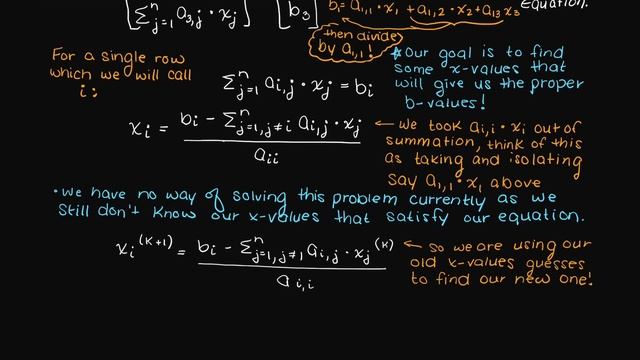 [∑ⁿⱼ₌₁ a₃,ⱼ · xⱼ] [b₃]
b₁ = a₁,₁ · x₁ + a₁,₂ · x₂ + a₁₃ x₃
Equation.
then divide
by a₁,₁!
For a single row
which we will call
i:
∑ⁿⱼ₌₁ aᵢ,ⱼ · xⱼ = bᵢ
*Our goal is to find
some x-values that
will give us the proper
b-values!
xᵢ = (bᵢ - ∑ⁿⱼ₌₁,ⱼ≠ᵢ aᵢ,ⱼ · xⱼ) / aᵢᵢ
← we took aᵢ,ᵢ · xᵢ out of
summation, think of this
as taking and isolating
say a₁,₁ · x₁ above
• we have no way of solving this problem currently as we
still don't know our x-values that satisfy our equation.
xᵢ⁽ᴷ⁺¹⁾ = (bᵢ - ∑ⁿⱼ₌₁,ⱼ≠₁ aᵢ,ⱼ · xⱼ⁽ᴷ⁾) / aᵢ,ᵢ
← so we are using our
old x-values guesses
to find our new one!